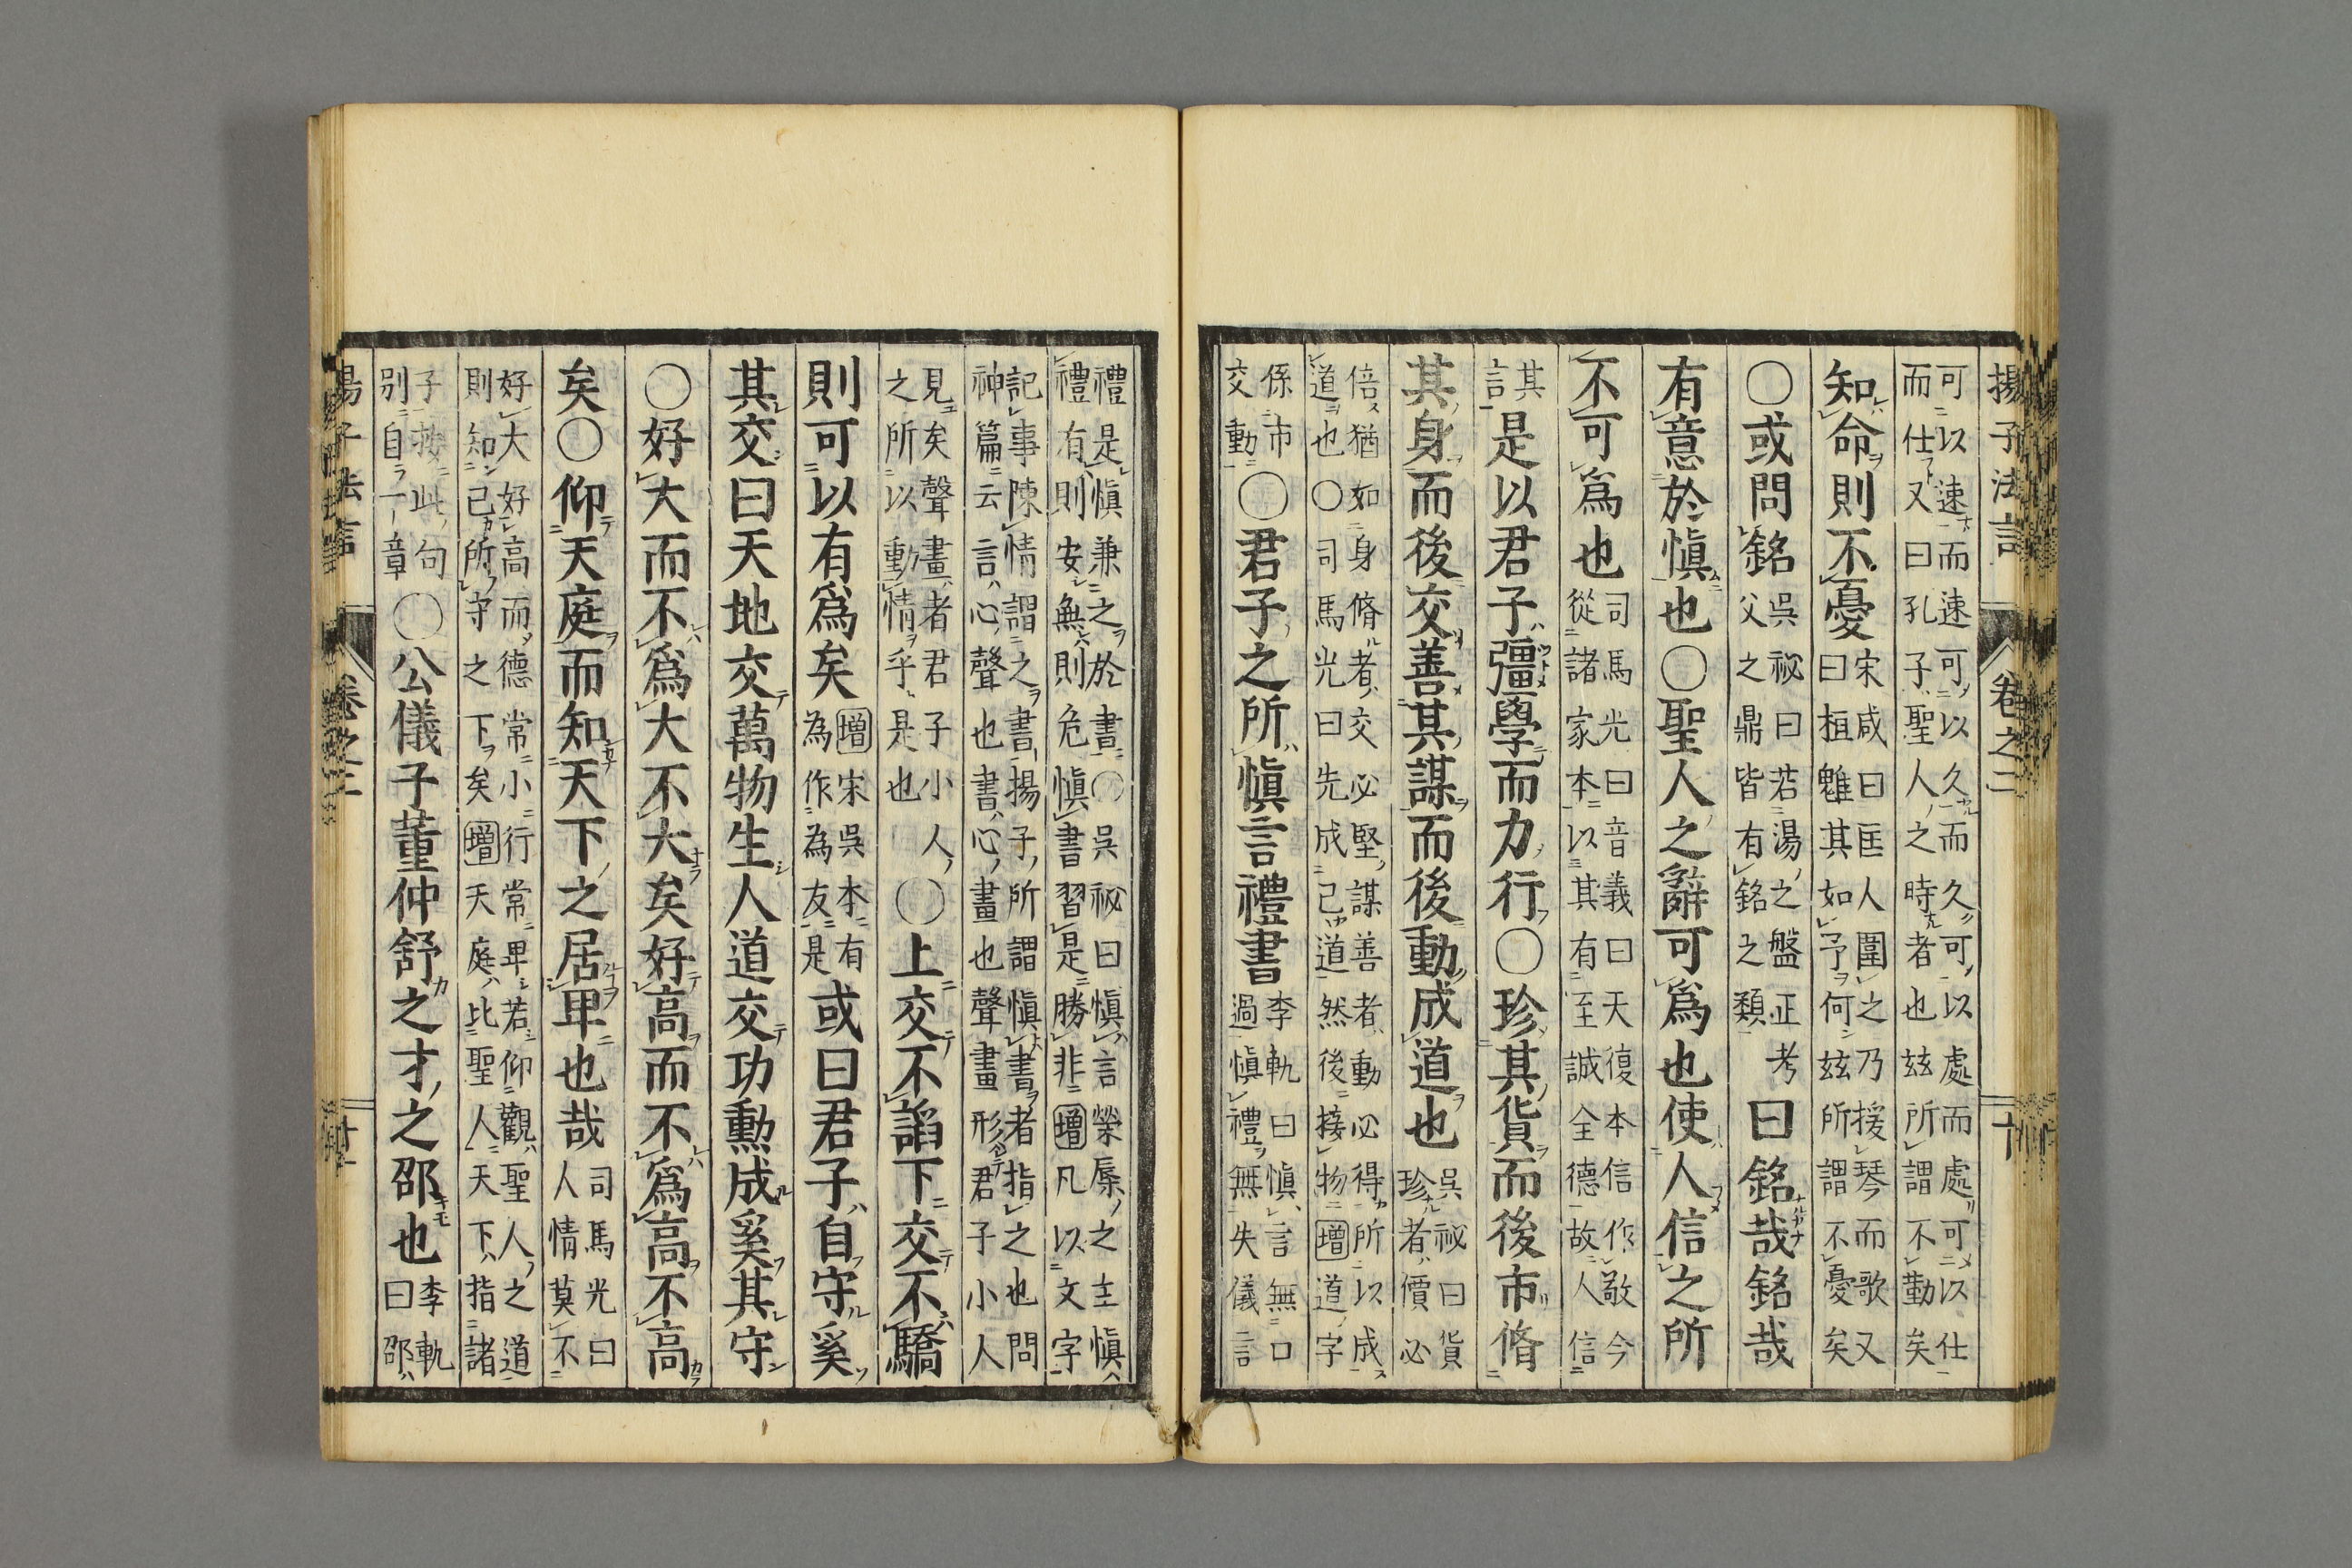 揚子法言 卷之二 十
可以速而速可以久而久可以處而處可以仕
而仕又曰孔子聖人之時者也玆所謂不勤矣
知命則不憂
宋咸曰匡人圍之乃援琴而歌又
曰桓魋其如予何玆所謂不憂矣
〇或問銘
吳祕曰若湯之盤正考
父之鼎皆有銘之類
曰銘哉銘哉
有意於愼也〇聖人之辭可爲也使人信之所
不可爲也
司馬光曰音義曰天復本信作敬今
從諸家本以其有至誠全德故人信
其
言
是以君子彊學而力行〇珍其貨而後市脩
其身而後交善其謀而後動成道也
吳祕曰貨
珍者價必
倍猶如身脩者交必堅謀善者動必得所以成
道也〇司馬光曰先成己道然後接物增道字
係市
交動
〇君子之所愼言禮書
李軌曰愼言無口
過愼禮無失儀言
禮是愼兼之於書〇吳祕曰愼言榮辱之主愼
禮有則安無則危愼書習是勝非增凡以文字
記事陳情謂之書揚子所謂愼書者指之也問
神篇云言心聲也書心畫也聲畫形君子小人
見矣聲畫者君子小人
之所以動情乎是也
〇上交不諂下交不驕
則可以有爲矣
增宋吳本有
為作為友是
或曰君子自守奚
其交曰天地交萬物生人道交功勳成奚其守
〇好大而不爲大不大矣好高而不爲高不高
矣〇仰天庭而知天下之居卑也哉
司馬光曰
人情莫不
好大好高而德常小行常卑若仰觀聖人之道
則知己所守之下矣增天庭比聖人天下指諸
子按此句
別自一章
〇公儀子董仲舒之才之邵也
李軌
曰邵
揚子法言 卷之二